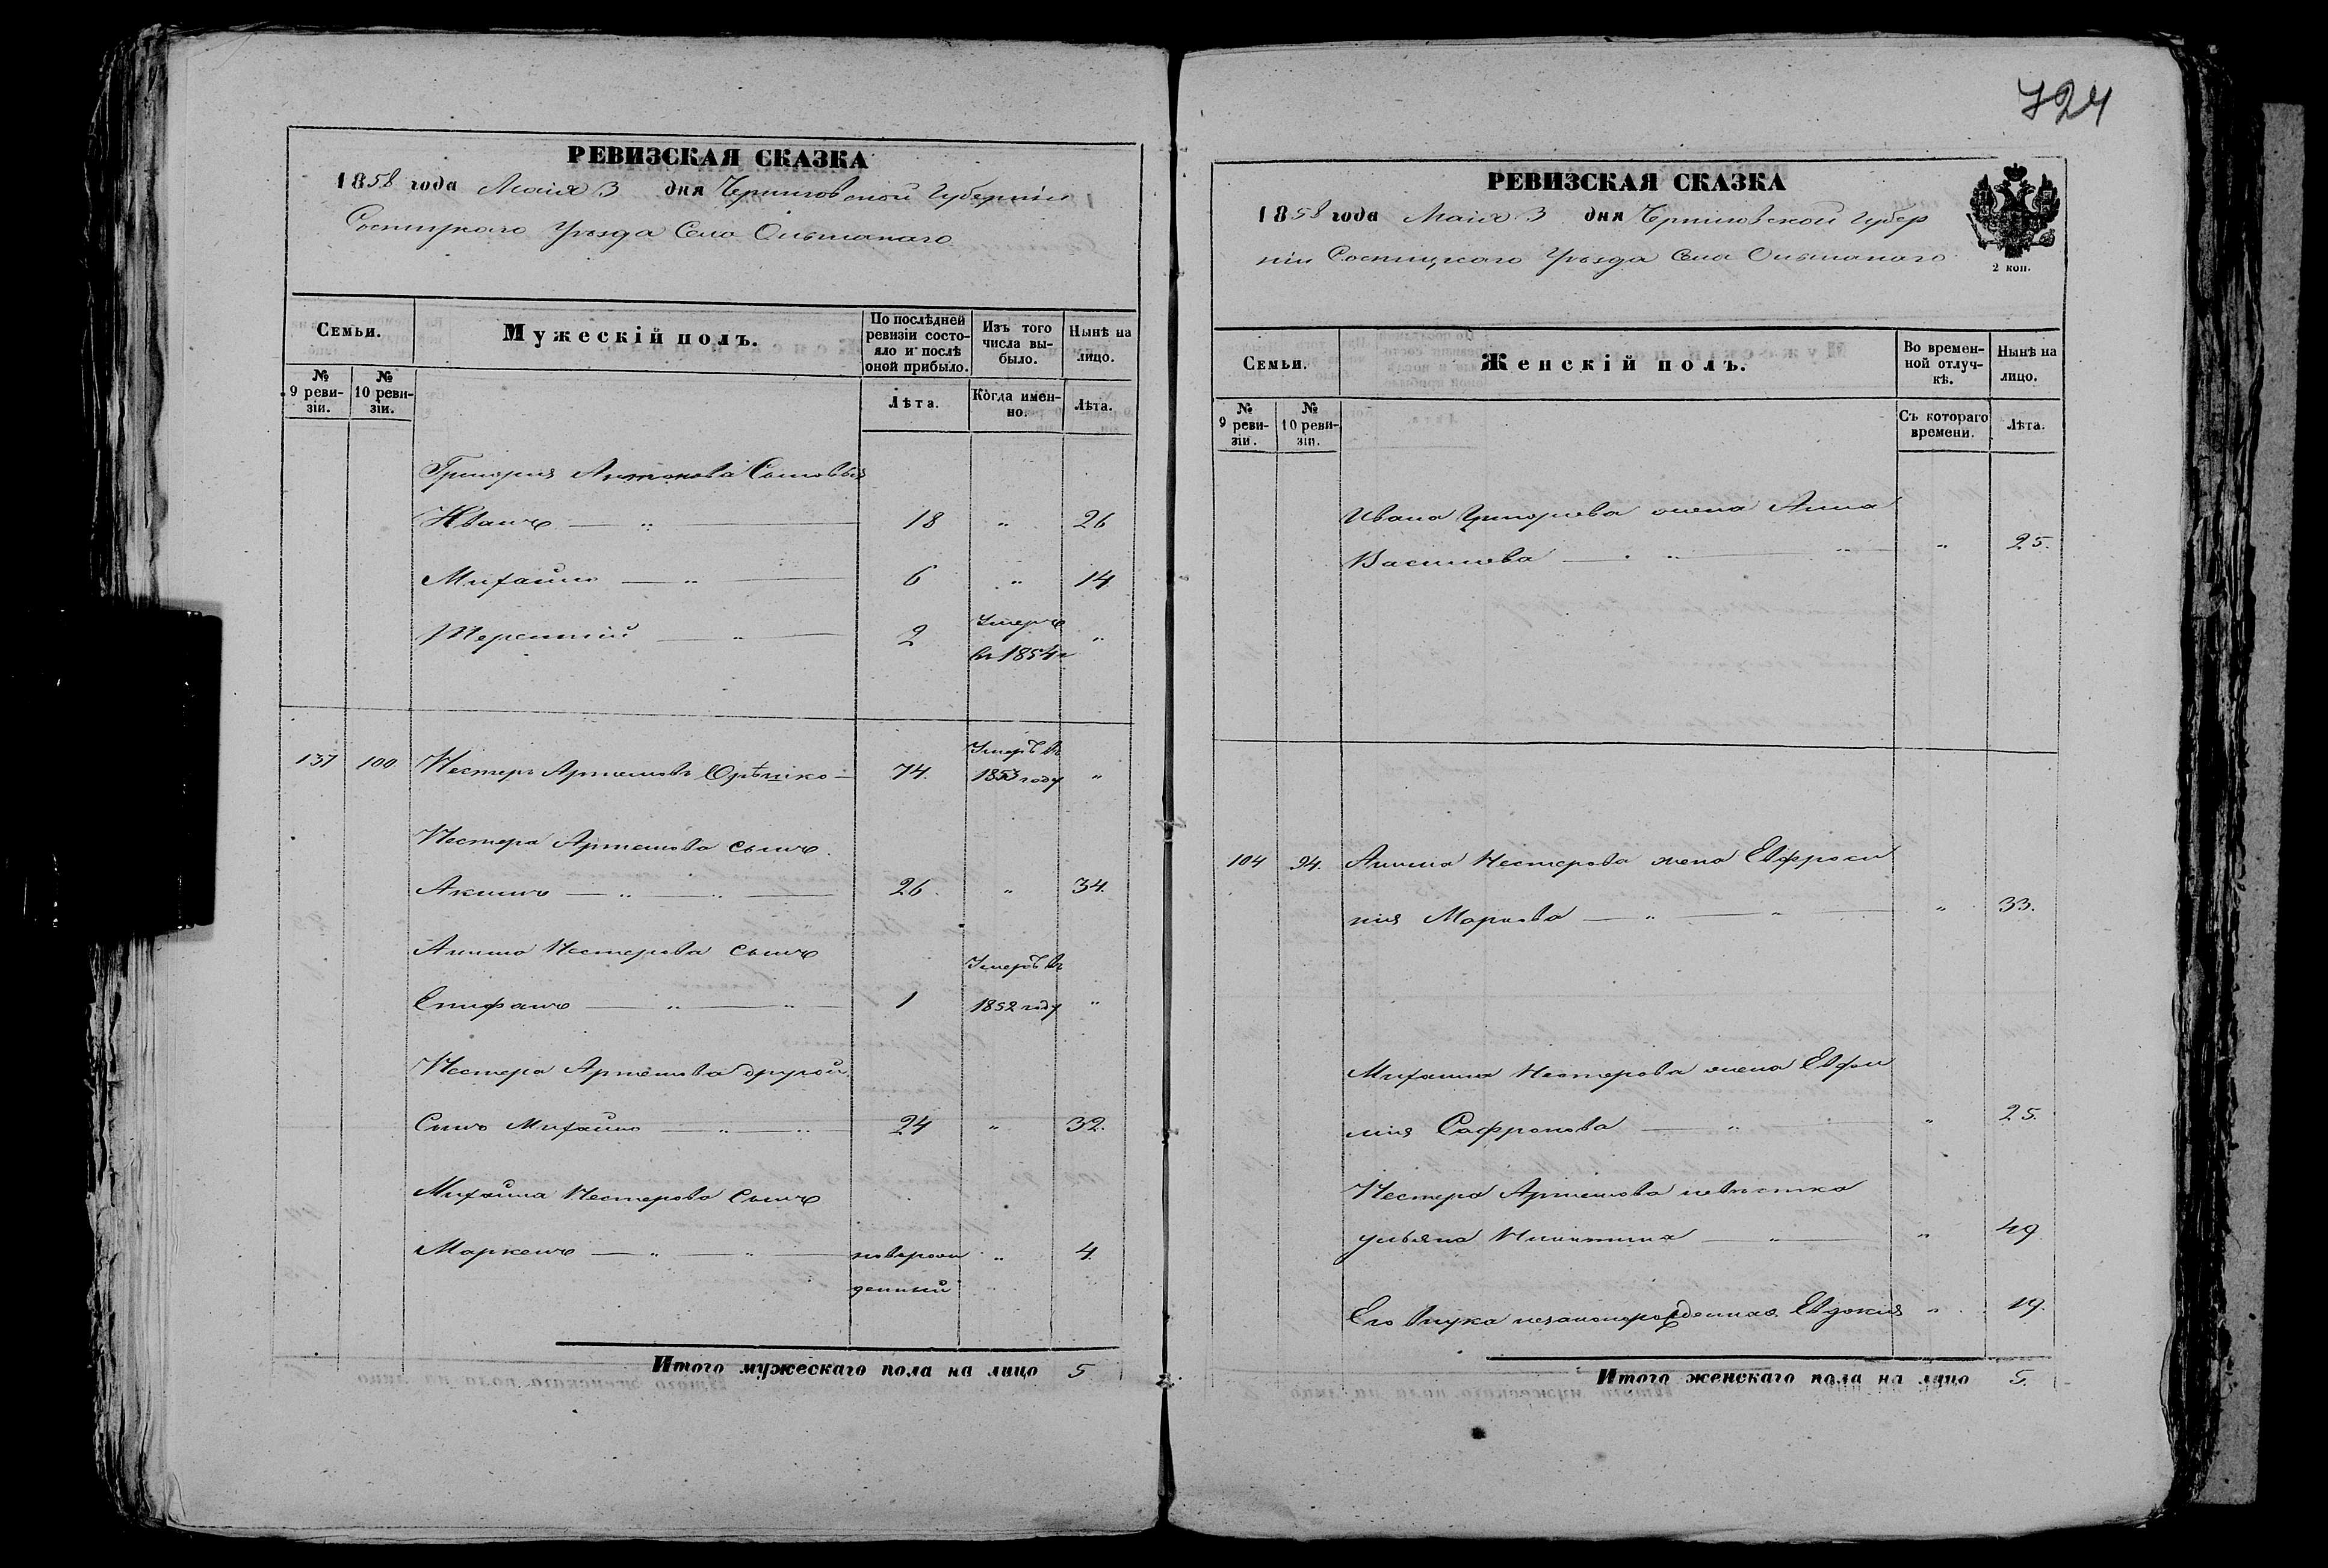 724
РЕВИЗСКАЯ СКАЗКА
1858 года Маія 3 дня Черниговской Губерніи
Сосницкаго Уѣзда Села Ольшанаго
Семьи.
Мужескій полъ.
По послѣдней ревизіи состояло и послѣ оной прибыло.
Изъ того числа выбыло.
Нынѣ на лицо.
№ 9 ревизіи.
№ 10 ревизіи.
Лѣта.
Когда именно.
Лѣта.
Григорія Антонова Сыновья
Иванъ — „ — 18 „ 26
Михайло — „ — 6 „ 14
Терентій — „ — 2 Умеръ въ 1854 г „
137 100 Нестеръ Артемовъ Орѣшко — 74. Умеръ въ 1853 году „
Нестера Артемова сынъ
Акимъ — „ — „ — 26. „ 34.
Акима Нестерова сынъ
Епифанъ — „ — „ — 1 Умеръ въ 1852 году „
Нестера Артемова другой
Сынъ Михайло — „ — „ 24 „ 32.
Михайла Нестерова Сынъ
Маркелъ — „ — „ — новорожденный „ 4.
Итого мужескаго пола на лицо 5
РЕВИЗСКАЯ СКАЗКА
1858 года Маія 3 дня Черниговской Губер
ніи Сосницкаго Уѣзда Села Ольшанаго
2 коп.
Семьи.
Женскій полъ.
Во временной отлучкѣ.
Нынѣ на лицо.
№ 9 ревизіи.
№ 10 ревизіи.
Съ котораго времени.
Лѣта.
Ивана Григорьева жена Анна
Васильева — „ — „ — „ 25.
104 94. Акима Нестерова жена Евфроси
нія Маркова — „ — „ — „ 33.
Михайла Нестерова жена Евфи
мія Сафронова — „ — „ 25.
Нестера Артемова невѣстка
Ульяна Никитина — „ — „ 49
Его внука незаконорожденная Евдокия „ 19.
Итого женскаго пола на лицо 5.